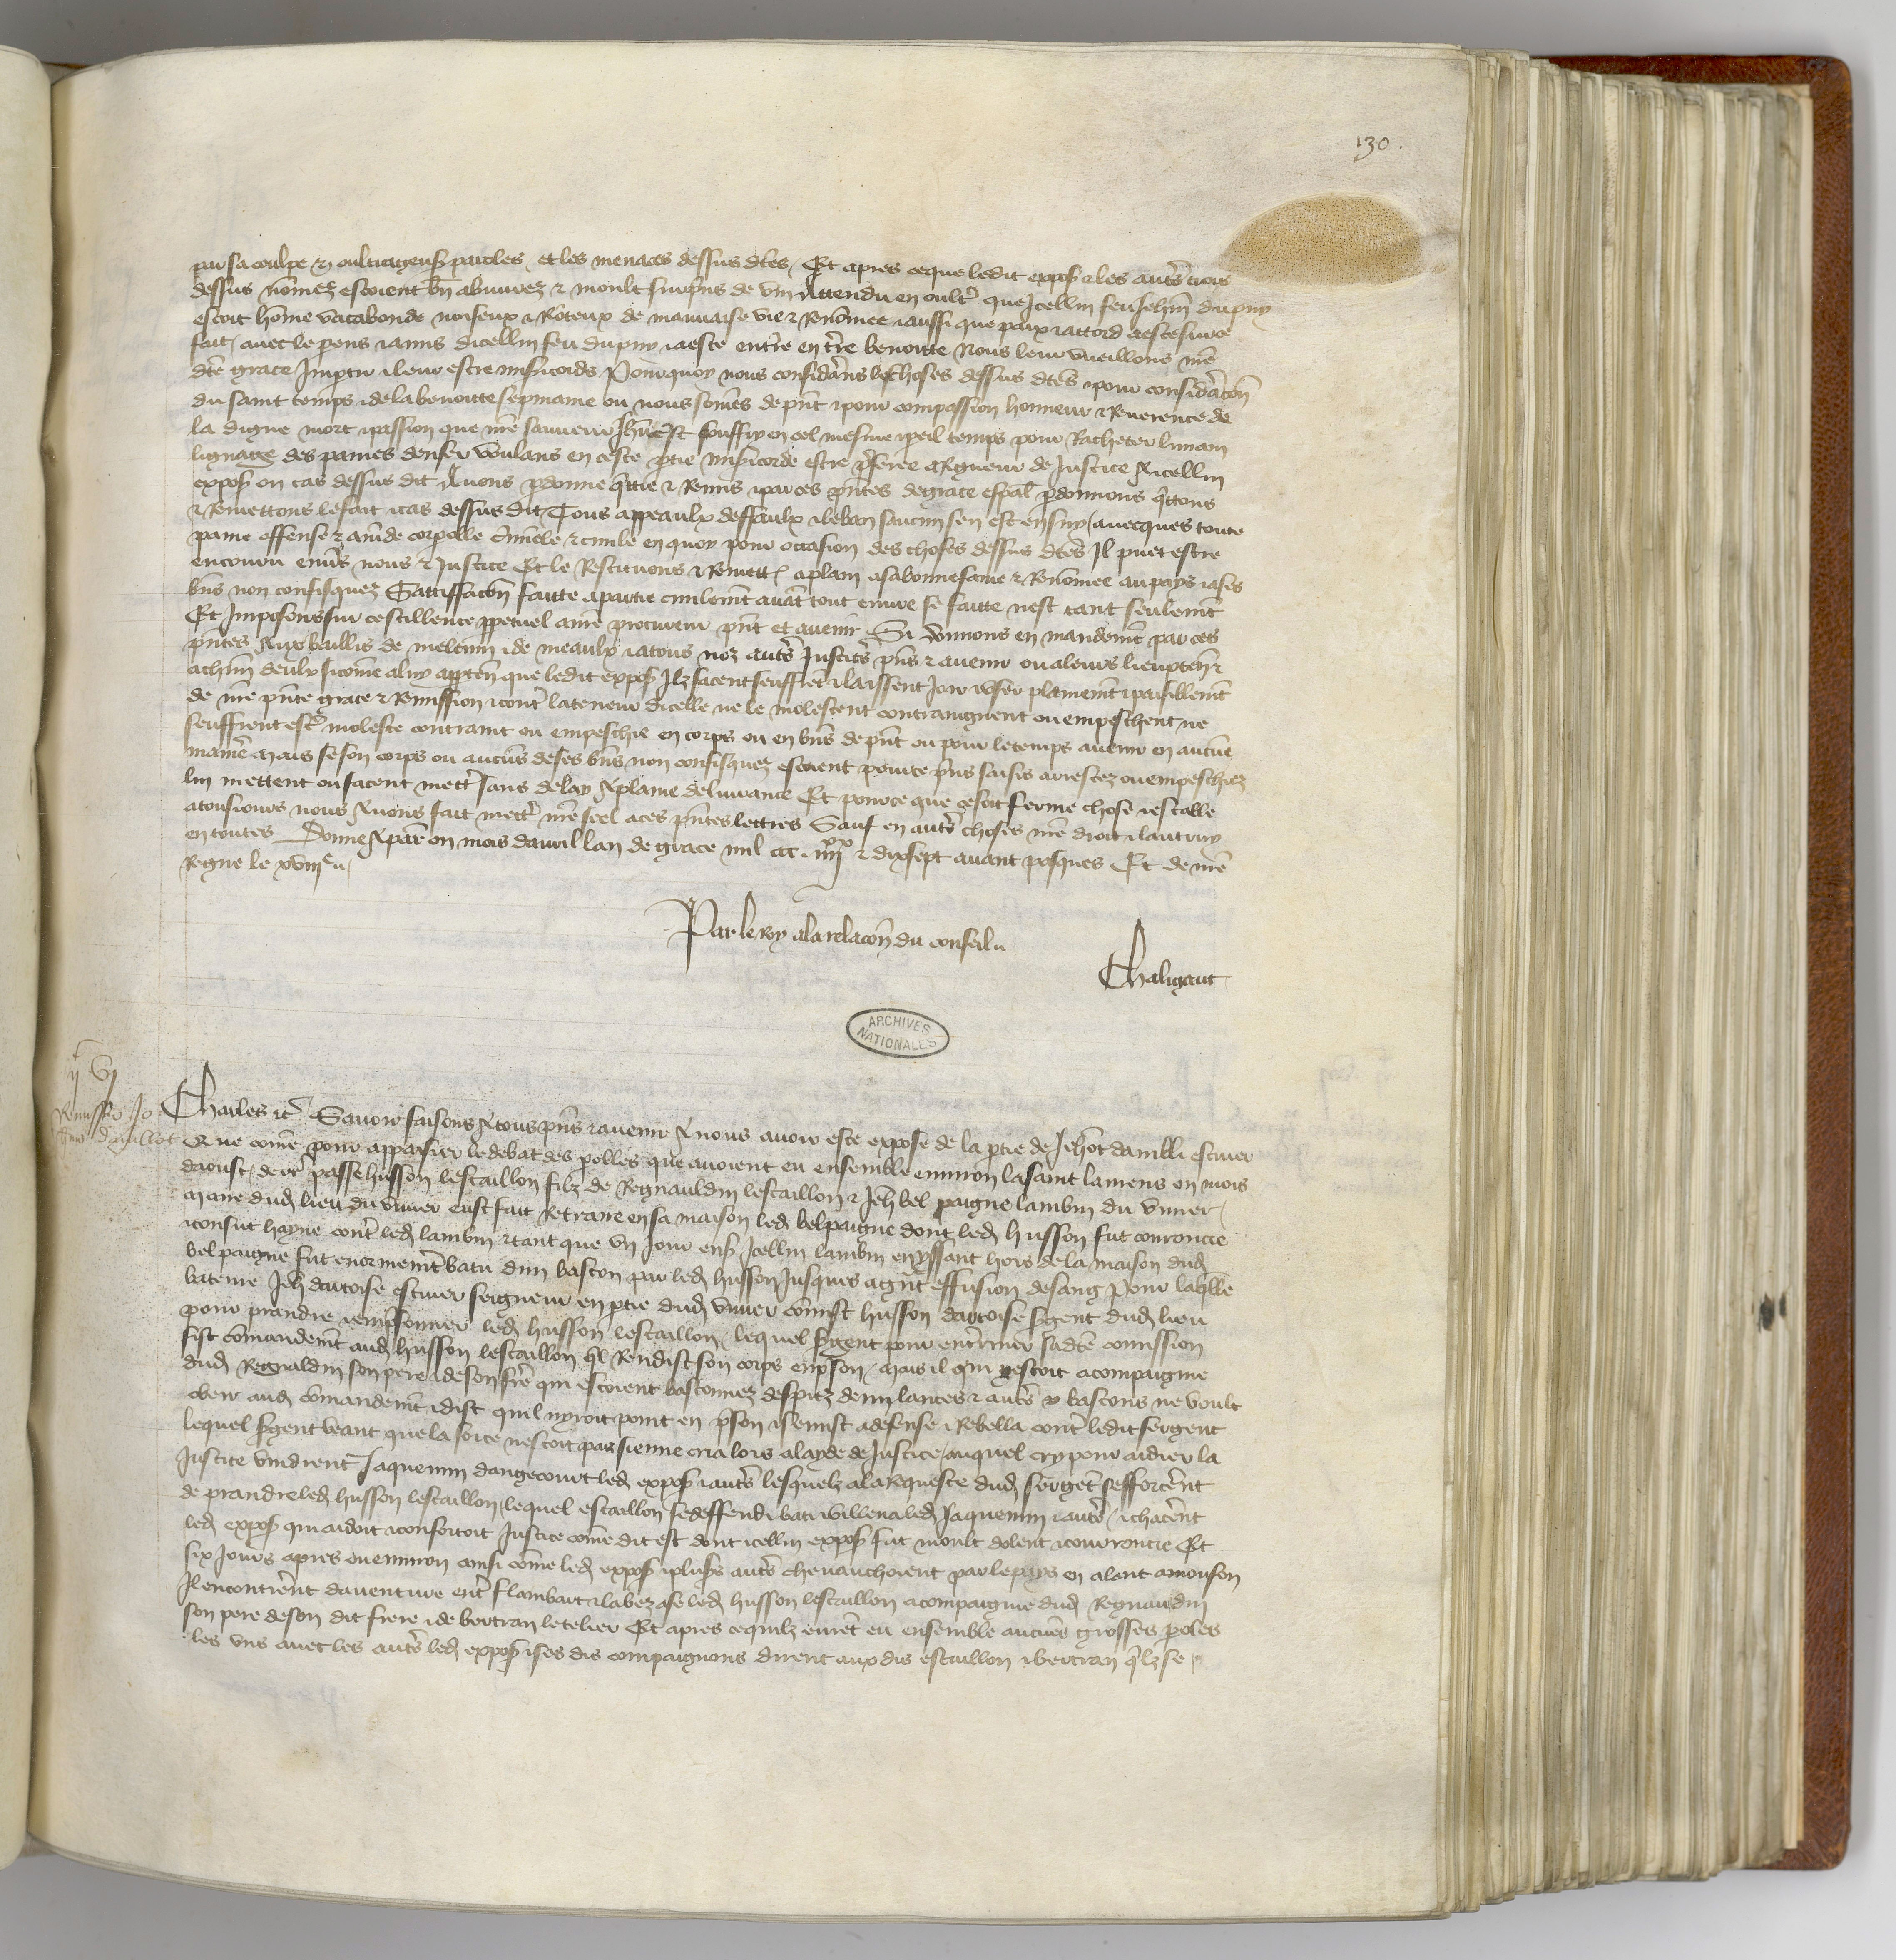 130.
par sa coulpe & oultrageuses paroles et les menaces dessus dtes / Et apres ce que ledit expos & les autres trois
dessus nomez estoient bn abuvrez & moult surpris de vin Attendu en oultre que Icellui feu Jehan dupuy
estoit home vacabonde noiseux & Roteux de mauvaise vie & Renomee & aussi que paix & accord a este sur ce
fait / avec le pens & amis dicellui feu dupuy & a este enterre en terre benoitte Nous leur vueillons nre
dte grace Impartir & leur estre misicords Pourquoy nous considerans les choses dessus dtes & pour consideracon
du saint temps & de la benoitte sepmaine ou nous somes de pnt & pour compassion honneur & Reverence de
la digne mort & passion que nre sauveur Jhucrist souffry en cel mesme & peil temps pour Racheter lumain
lignaige des paines denfer voulans en ceste ptie misicorde estre pferee a Rigueur de Justice A icellui
expos ou cas dessus dit Avons pdonne qttie & Remis & par ces pntes de grace espal pdonnons qttons
& Remettons le fait & cas dessus dit Tous appeaulx deffaulx & le ban saucun sen est ensuy / avecques toute
paine offense & amde corpolle criminele & civile en quoy pour occasion des choses dessus dtes Il puet estre
encouru envs nous & Justice Et le Restituons & Remett a plain a sa bonne fame & Renomee au pays & a ses
bns non confisquez Sattisfacon faitte a partie civilemt avat tout euvre se faitte nest tant seulemt
Et Imposons sur ce scillence ppetuel a nre procureur pnt et avenir Si donnons en mandemt par ces
pntes Aux baillis de meleun & de meaulx & a tous noz autres Justics pns & avenir ou a leurs lieuxten
a chun deulx sicome a luy apptend que ledit expos Ilz facent seuffret & laissent Jouir & user plainemt & paisiblemt
de nre pnte grace & Remission & contre la teneur dicelle ne le molestent contraignent ou empeschent ne
seuffrent estre moleste contraint ou empeschie en corps ou en bns de pnt ou pour le temps avenir en aucune
maniere Mais se son corps ou aucuns de ses bns non confisquez estoient pour ce pns saisis arrestez ou empeschez
lui mettent ou facent mettre sans delay A plaine delivrance Et pour ce que ce soit ferme chose & estable
a tousiours nous Avons fait mettre nre seel a ces pntes lettres Sauf en autres choses nre droit & lautruy
en toutes Donne A paris ou mois davril lan de grace mil ccc iiiixx & dixsept avant pasques Et de nre
Regne le xviiie
Par le Roy a la relacon du conseil
Chaligaut
ARCHIVES NATIONALES
Remissio Jo
Charles &c Savoir faisons A tous pns & avenir A nous avoir este expose de la ptie de Jehot dambli escuier
Que come pour appaisier le debat des polles que avoient eu ensemble environ la saint laurens ou mois
daoust derr passe husson lescaillon filz de Regnauldin lescaillon & Jeh bel paigne lambin du vivier /
Maire dud lieu du vivier eust fait Retraire en sa maison led belpaigne dont led husson fut courroucie
& consut hayne contre led lambin & tant que un Jour ens Icellui lambin en yssant hors de la maison dud
belpaigne fut enormemt batu dun baston par led husson Jusques a gnt effusion de sang Pour laqlle
bateure Jeh dartoise escuier seigneur en ptie dud vivier comist husson dartoise sgent dud lieu
pour prandre & emprisonner led husson lescaillon / lequel sgent pour enteriner sadte comission
fist comandemt aud husson lescaillon ql Rendist son corps en pson / Mais il qui estoit acompaigne
dud Regnaldin son pere & de son frere qui estoient bastonnez despitz demi lances & autres bastons ne voult
obeir aud comandemt & dist quil nyroit point en pson & se mist a defense & Rebella contre ledit sergent
lequel sgent veant que la force nestoit pas sienne cria lors a layde de Justice / auquel cry pour aidier la
Justice vindrent Jaquemin dangecourt led expos & autres lesquelz a la Requeste dud serget sefforcerent
de prandre led husson lescaillon / lequel escaillon se deffendi bati & villena led Jaquemin & autres / & chacerent
led expos qui aidoit & confortoit Justice come dit est dont icellui expos fut moult dolent & courroucie Et
six Jours apres ou environ ainsi come led expos & pluss autres chevauchoient par le pays en alant a mouson
Il encontrerent daventure entre flambart & la bezasse led husson lescaillon acompaigne dud Regnaudin
son pere de son dit frere & de bertran le telier Et apres ce quilz eurent eu ensemble aucunes grosses poles
les uns avec les autres led expos & ses dis compaignons dirent aux dis escaillon & bertran qlz se